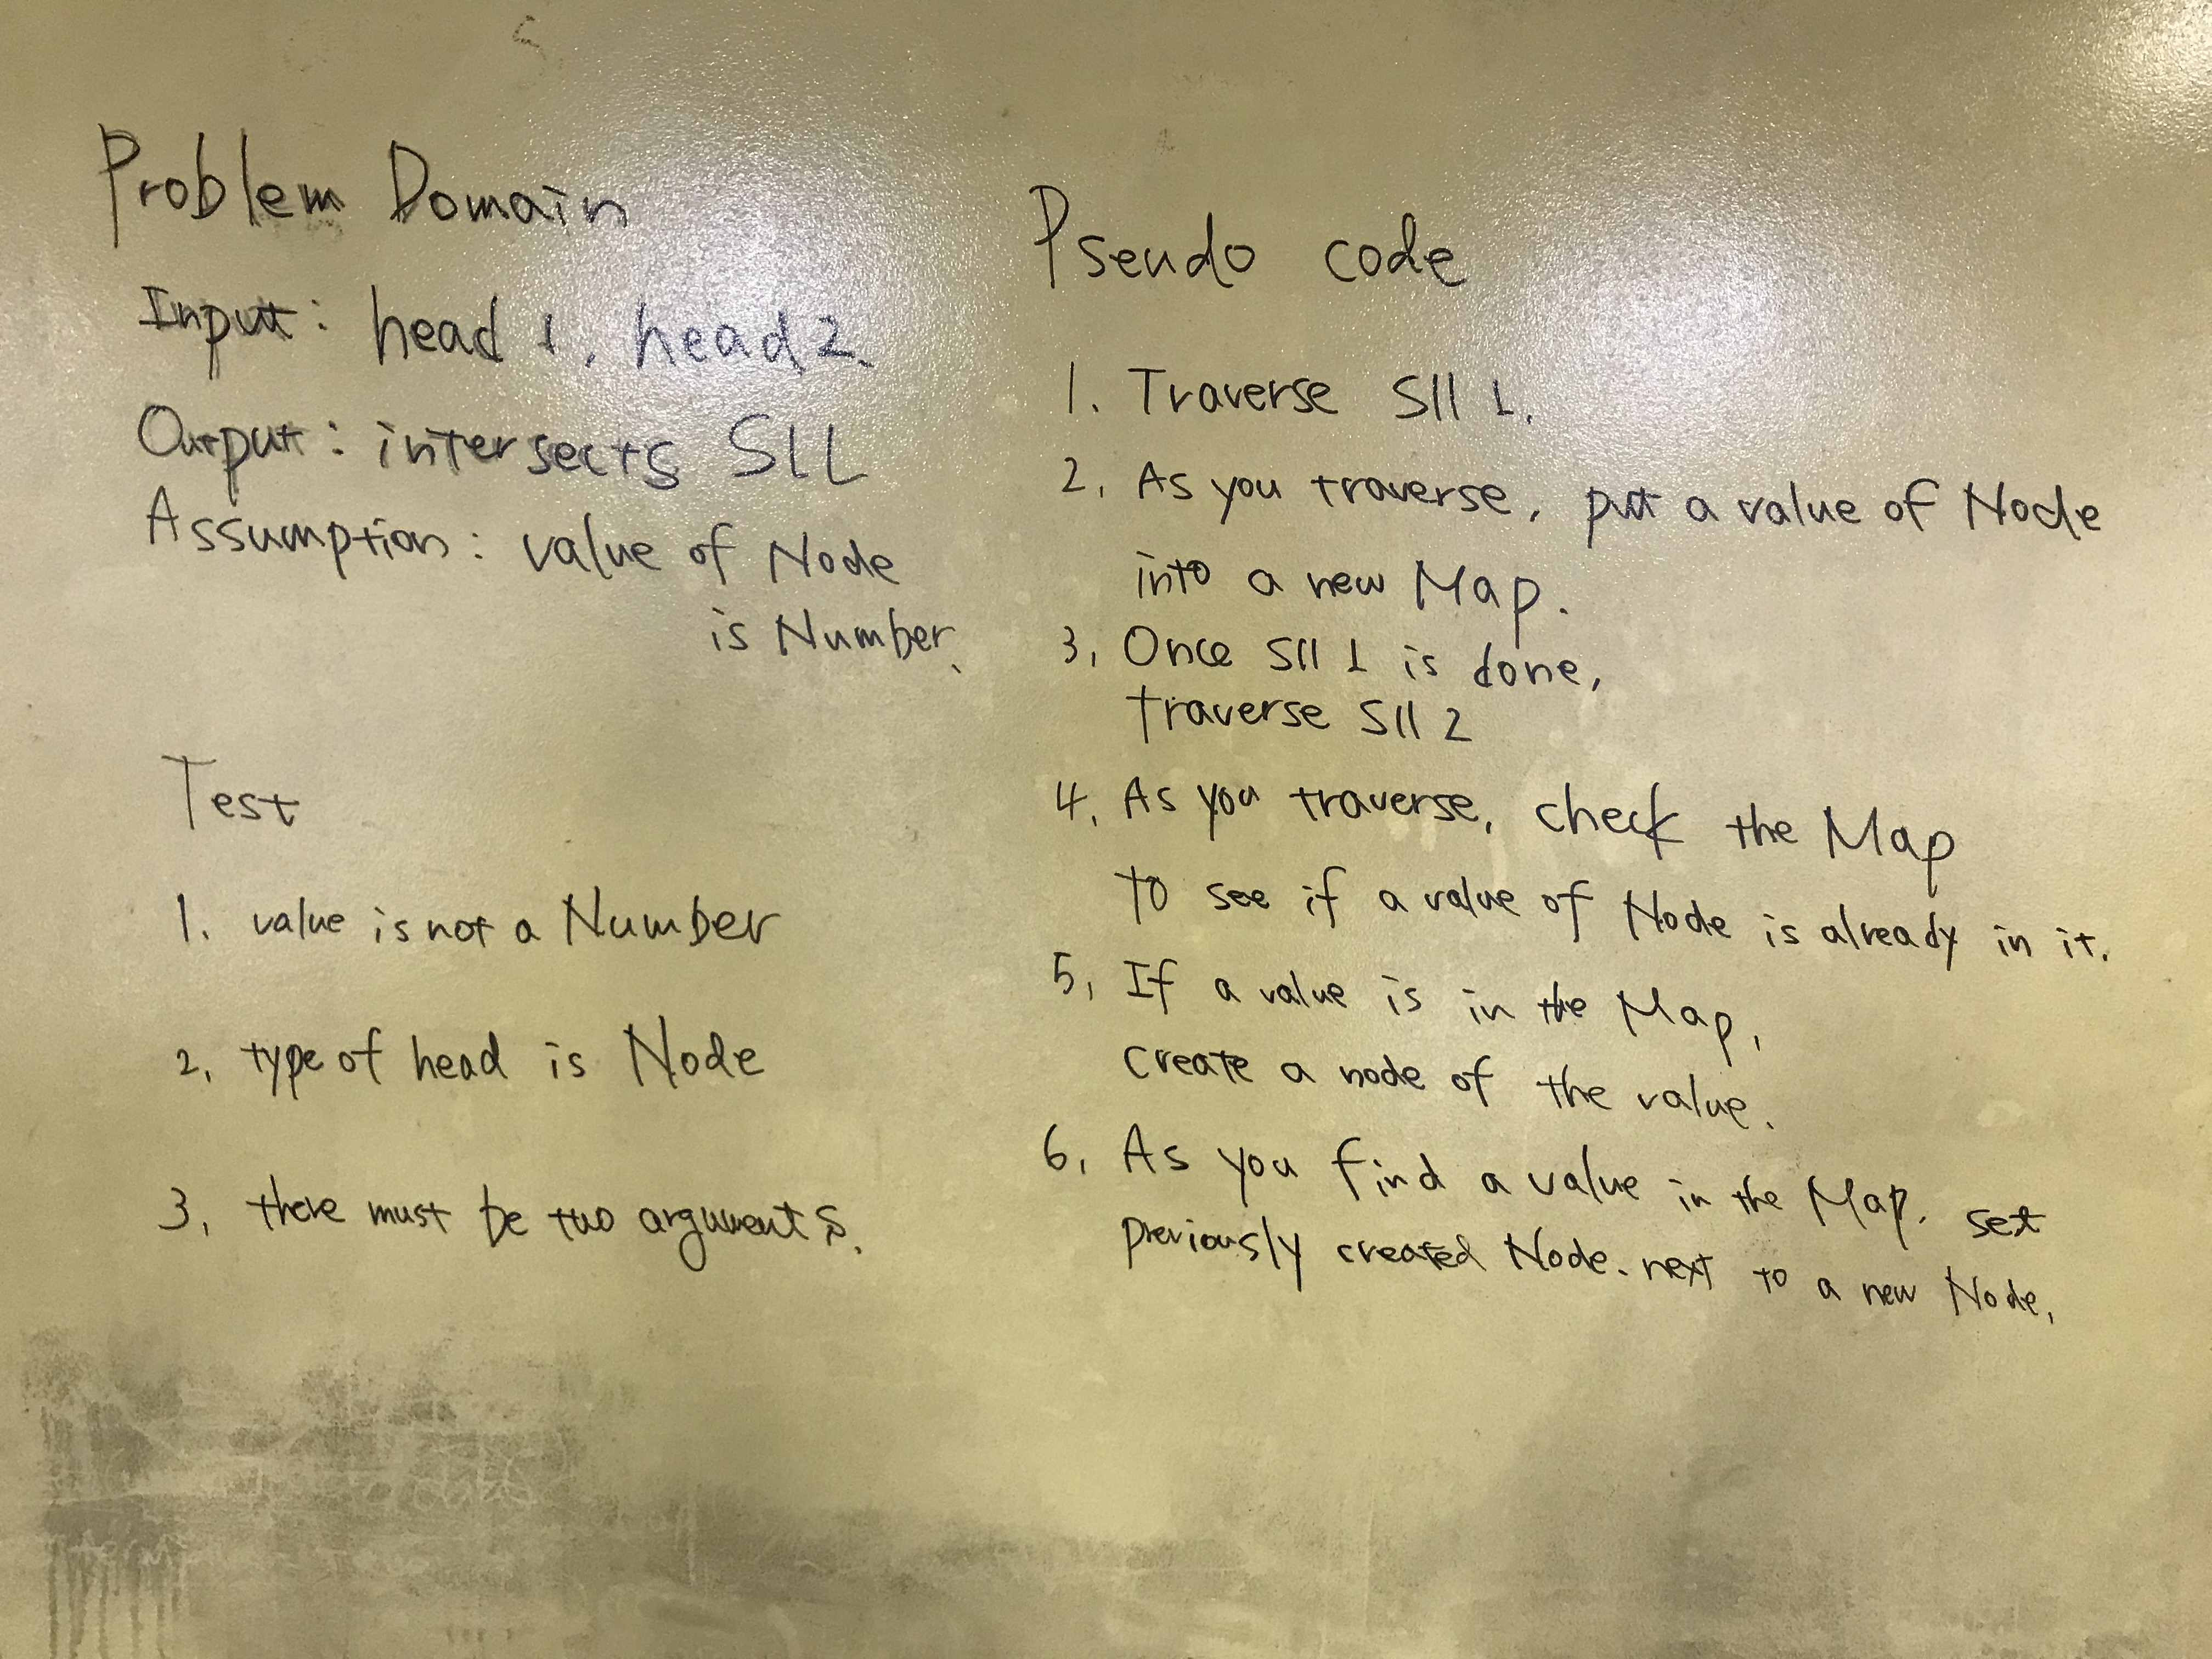 Problem Domain
Input: head 1, head 2.
Output: intersects SLL
Assumption: value of Node
is Number.
Test
1. value is not a Number
2. type of head is Node
3. there must be two arguments.
Pseudo code
1. Traverse Sll 1.
2. As you traverse, put a value of Node
into a new Map.
3. Once Sll 1 is done,
traverse Sll 2
4. As you traverse, check the Map
to see if a value of Node is already in it.
5. If a value is in the Map,
create a node of the value.
6. As you find a value in the Map. set
previously created Node.next to a new Node.